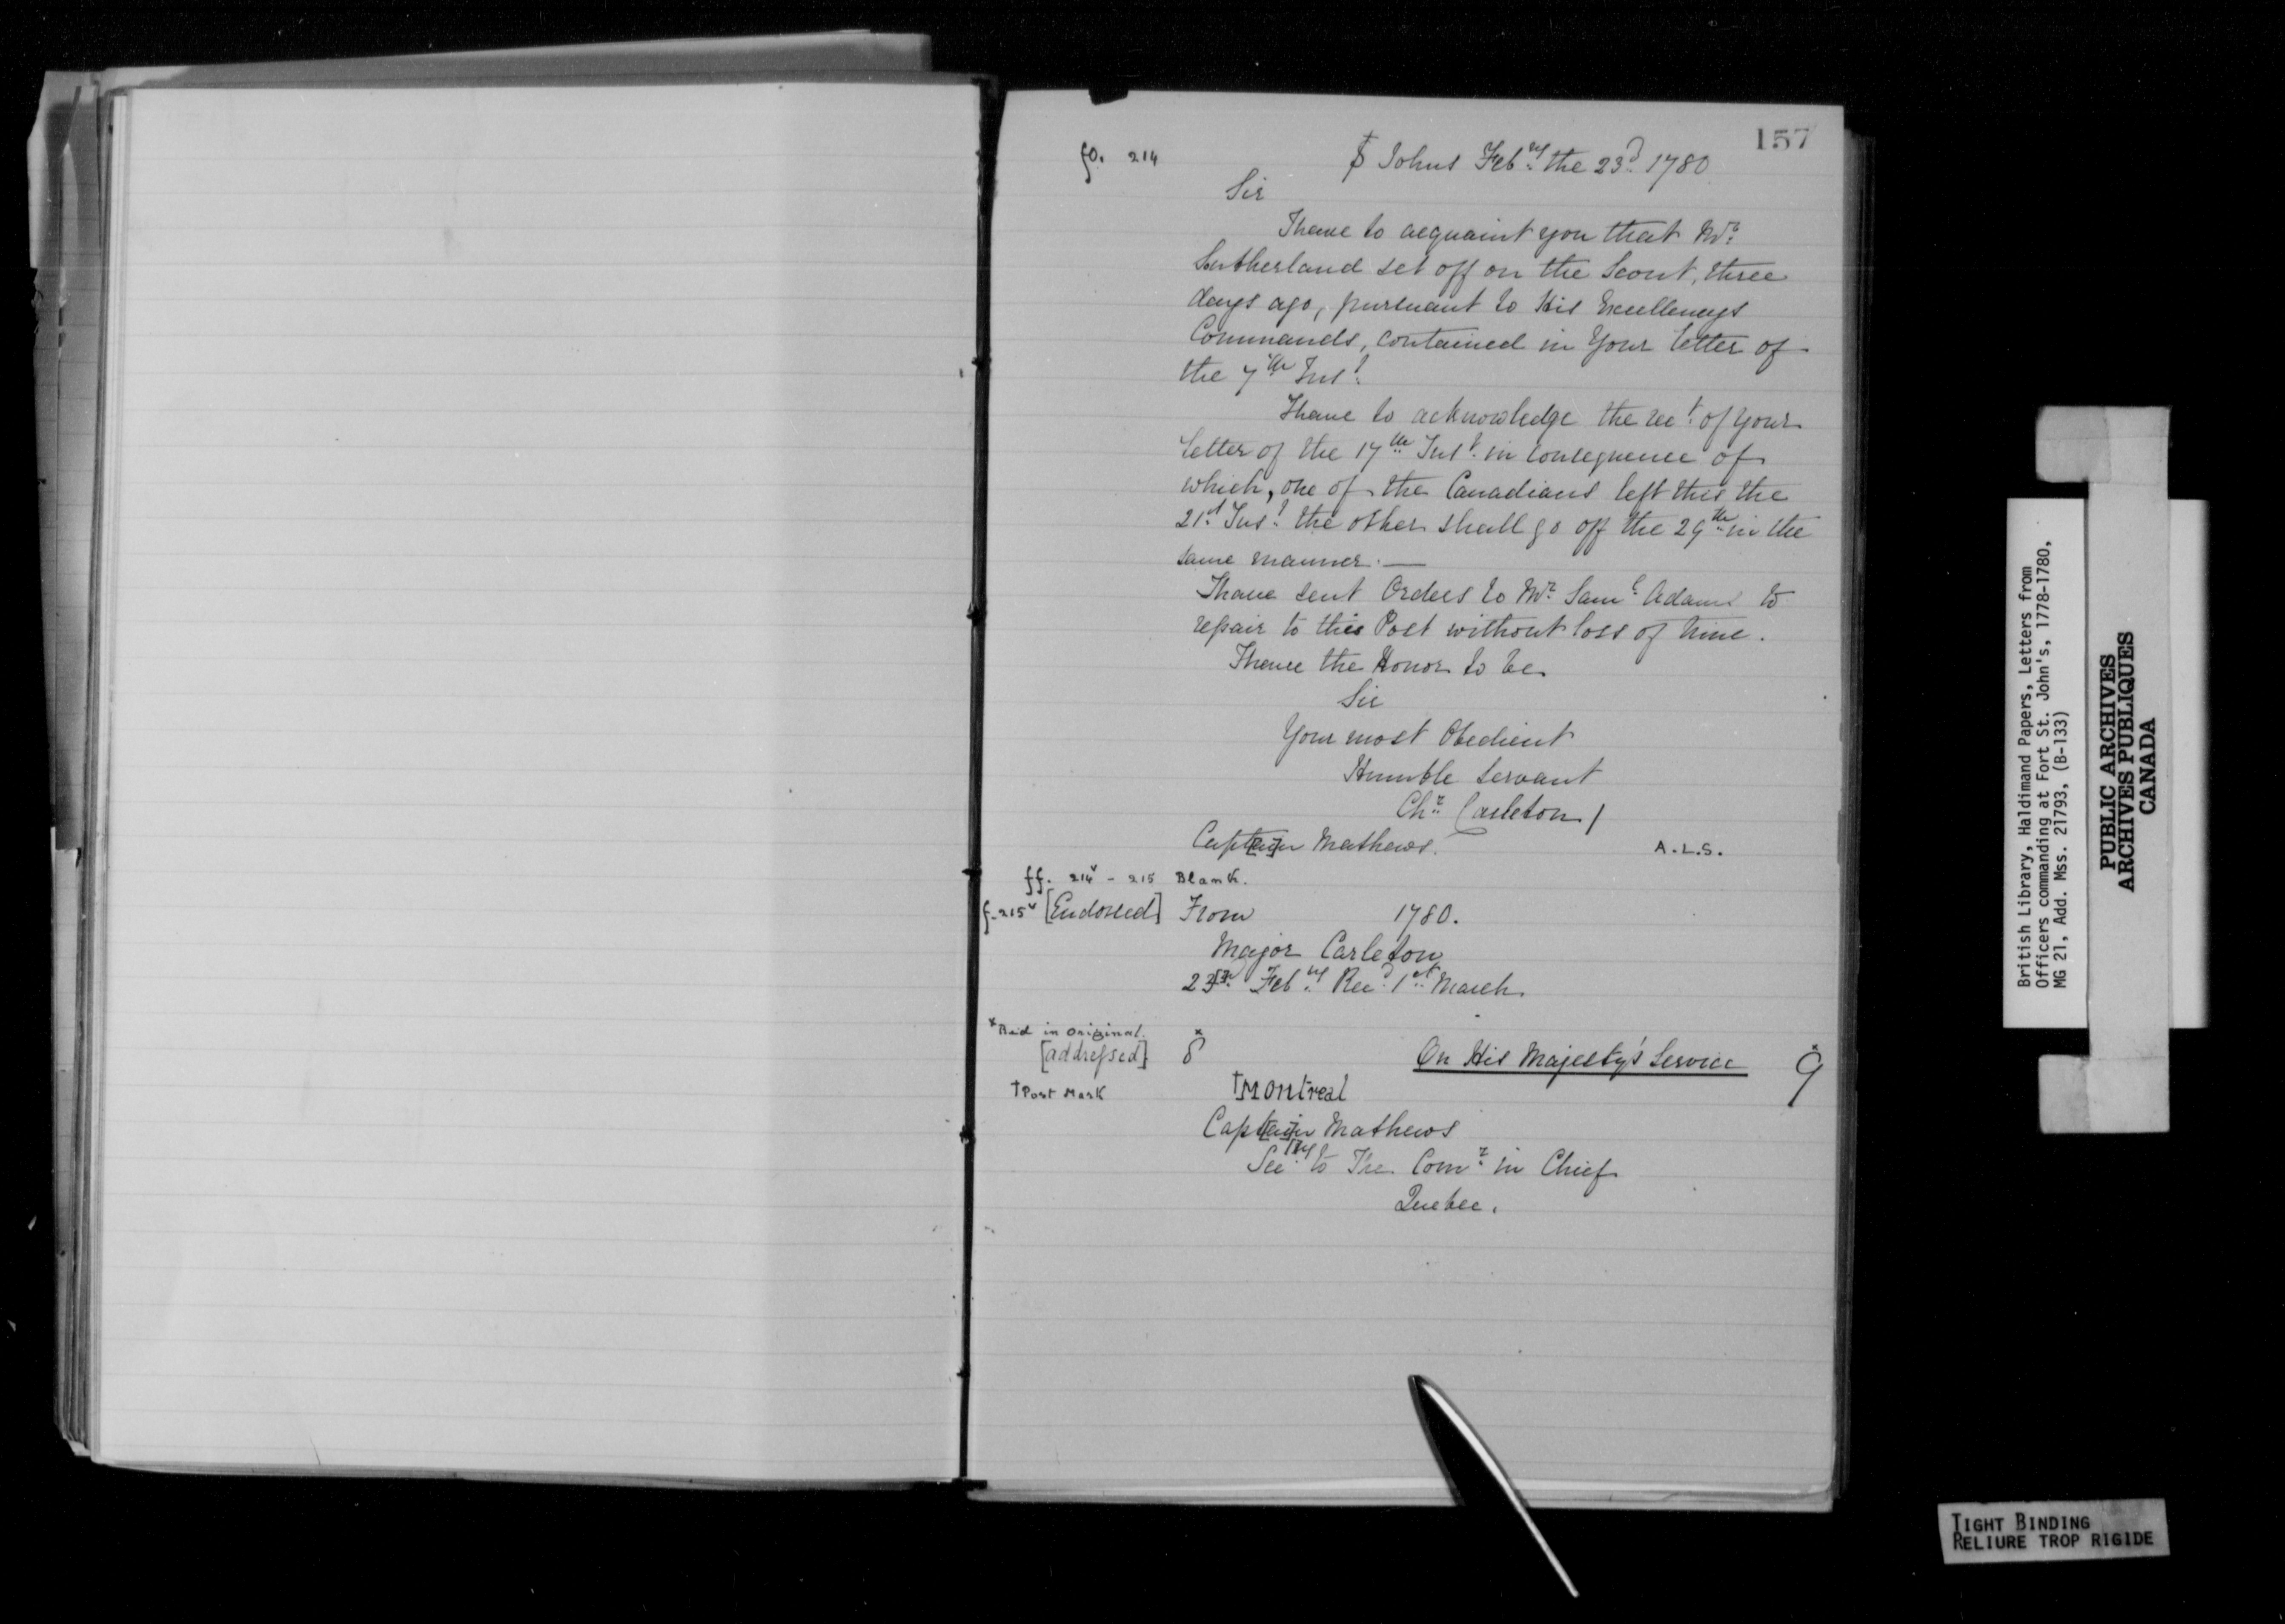 157
fo. 214
St Johns Feb:ry the 23d 1780
Sir
I have to acquaint you that Mr
Sutherland set off on the Scout, three
days ago, pursuant to His Excellencys
Commands, contained in Your Letter of
the 7th Inst.
I have to acknowledge the rect. of Your
Letter of the 17th Inst. in consequence of
which, one of the Canadians left this the
21st Inst. the other shall go off the 29th in the
same manner.—
I have sent Orders to Mr. Saml. Adams to
repair to this Post without loss of time.
I have the Honor to be
Sir
Your most Obedient
Humble Servant
Chr. Carleton/
Capt[ai]n Mathews.
A.L.S.
ff. 214v - 215 Blank.
f. 215v [Endorsed] From 1780.
Major Carleton
23rd Feb:ry Recd 1st March.
*Red in original.
[addressed] 8* On His Majesty's Service 9*
†Post Mark †Montreal
Capt[ai]n Mathews
Secry to The Comr. in Chief
Quebec.
British Library, Haldimand Papers, Letters from
Officers commanding at Fort St. John's, 1778-1780,
MG 21, Add. Mss. 21793, (B-133)
PUBLIC ARCHIVES
ARCHIVES PUBLIQUES
CANADA
TIGHT BINDING
RELIURE TROP RIGIDE